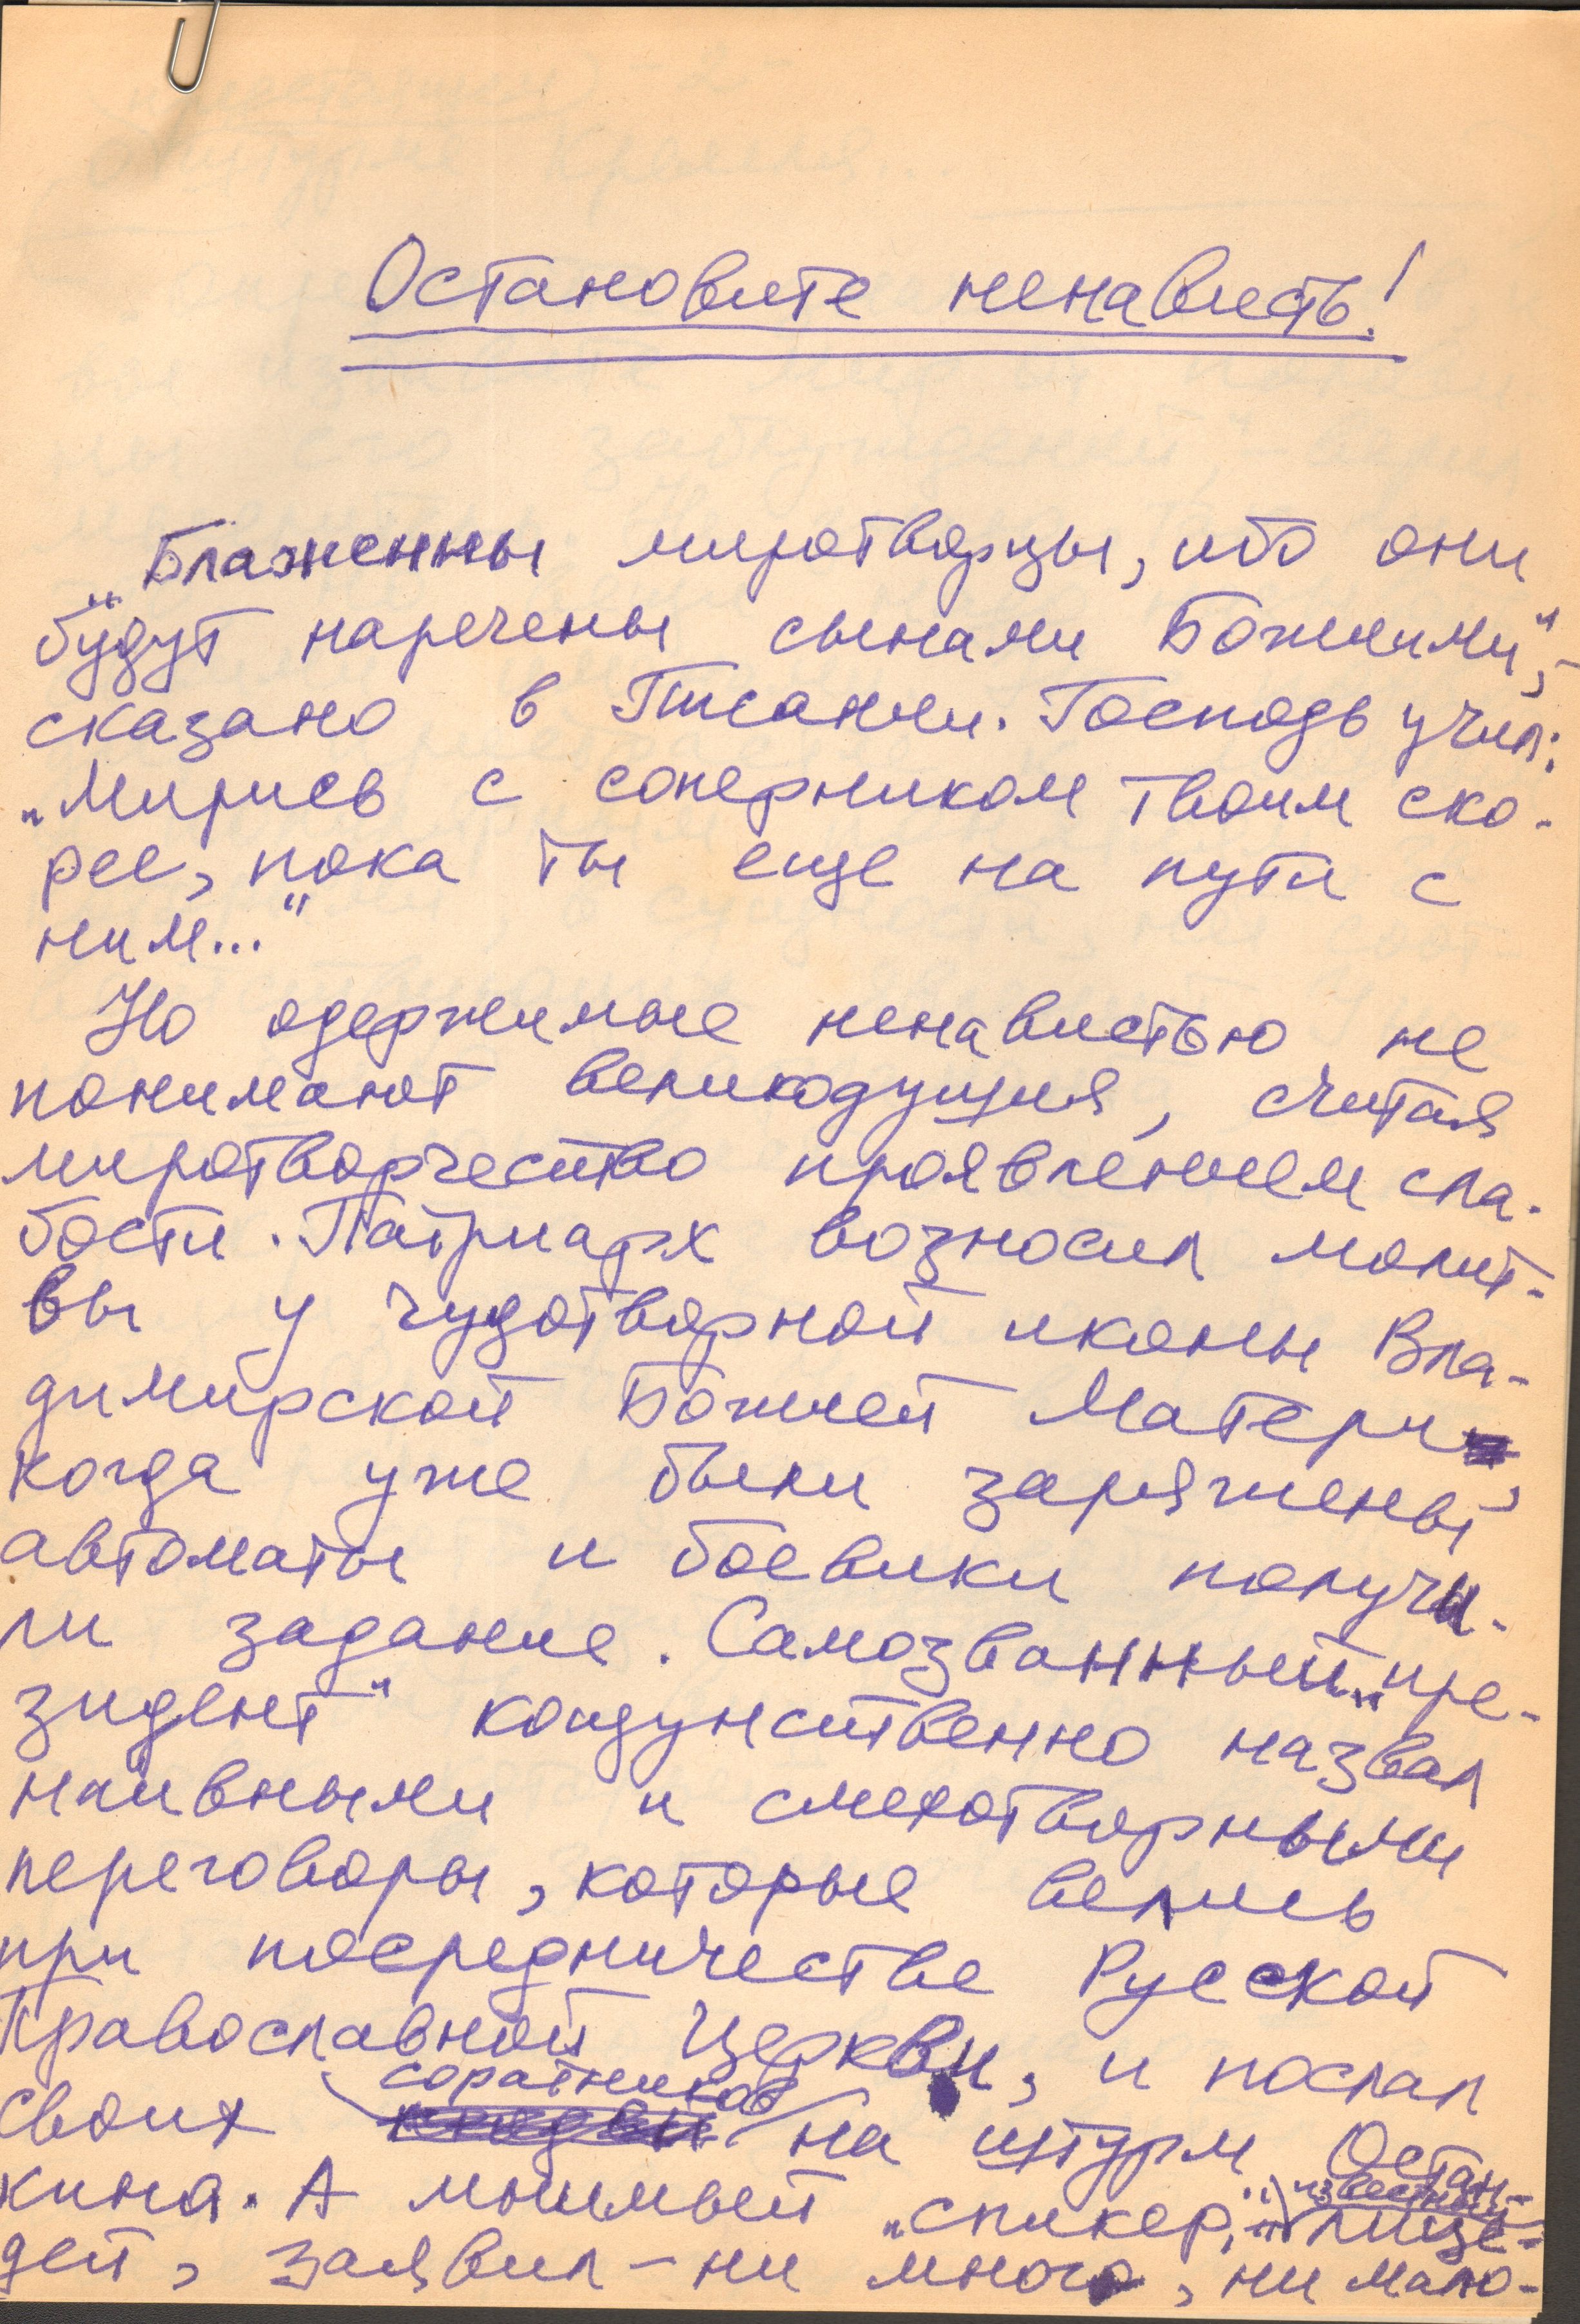 Остановите ненависть!
„Блаженны миротворцы, ибо они
будут наречены сынами Божиими“, –
сказано в Писании. Господь учил:
„Мирись с соперником твоим ско-
рее, пока ты еще на пути с
ним...“
Но одержимые ненавистью не
понимают великодушия, считая
миротворчество проявлением сла-
бости. Патриарх возносил молит-
вы у чудотворной иконы Вла-
димирской Божией Матери,
когда уже были заряжены
автоматы и боевики получи-
ли задание. Самозванный „пре-
зидент“ кощунственно назвал
наивными и смехотворными
переговоры, которые велись
при посредничестве Русской
Православной Церкви, и послал
соратников
своих людей на штурм Остан-
известный
кина. А мнимый „спикер“, лице-
дей, заявил – ни много, ни мало –